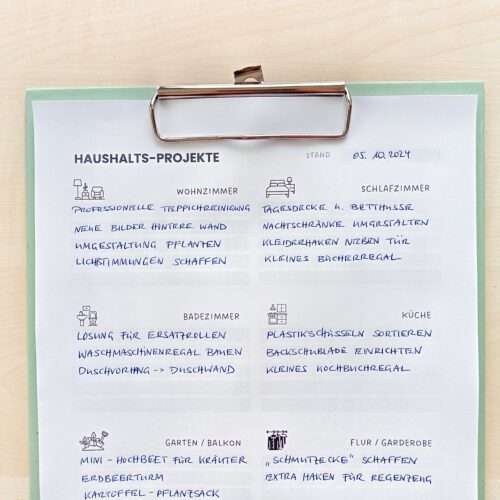 HAUSHALTS-PROJEKTE
STAND 05.10.2024
WOHNZIMMER
PROFESSIONELLE TEPPICHREINIGUNG
NEUE BILDER HINTERE WAND
UMGESTALTUNG PFLANZEN
LICHSTIMMUNGEN SCHAFFEN
SCHLAFZIMMER
TAGESDECKE U. BETTHUSSE
NACHTSCHRÄNKE UMGESTALTEN
KLEIDERHAKEN NEBEN TÜR
KLEINES BÜCHERREGAL
BADEZIMMER
LÖSUNG FÜR ERSATZROLLEN
WASCHMASCHINENREGAL BAUEN
DUSCHVORHANG -> DUSCHWAND
KÜCHE
PLASTIKSCHÜSSELN SORTIEREN
BACKSCHUBLADE EINRICHTEN
KLEINES KOCHBUCHREGAL
GARTEN / BALKON
MINI - HOCHBEET FÜR KRÄUTER
ERDBEERTURM
KARTOFFEL - PFLANZSACK
FLUR / GARDEROBE
„SCHMUTZECKE" SCHAFFEN
EXTRA HAKEN FÜR REGENZEUG